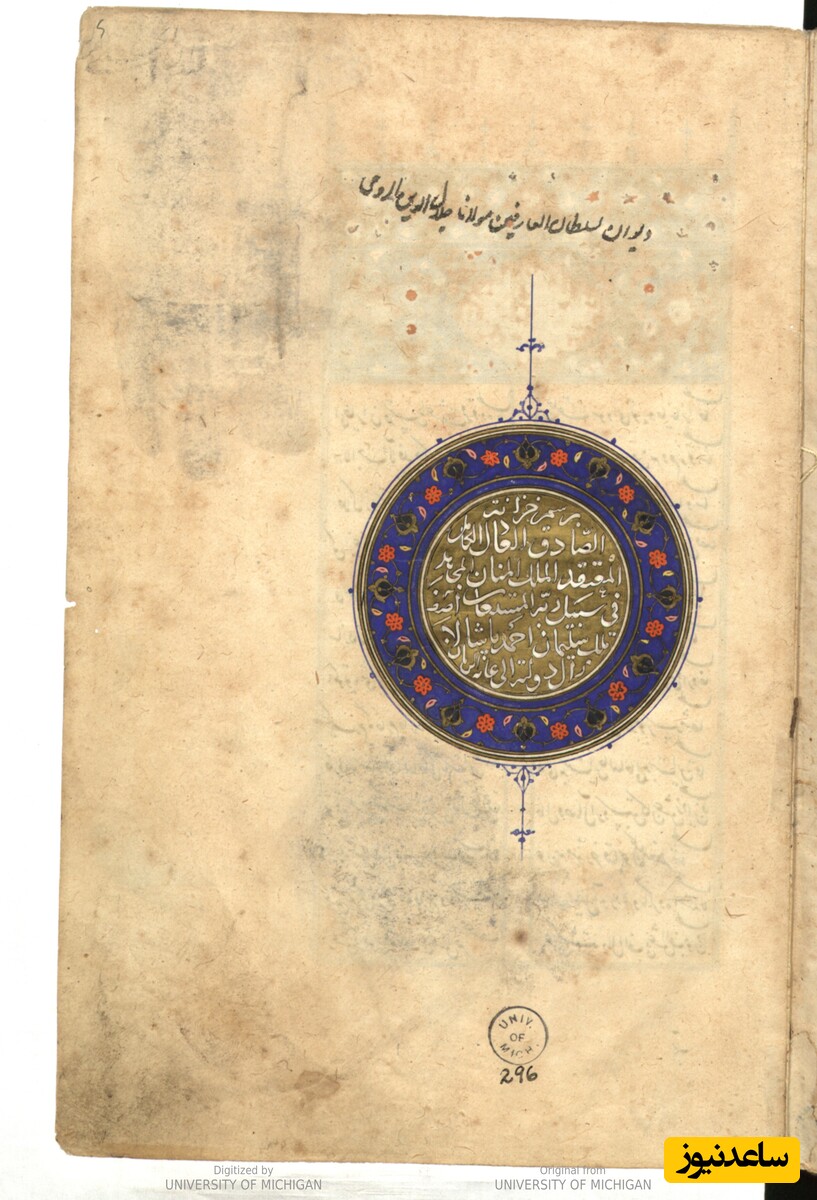 ديوان سلطان العارفين مولانا جلال الدين الرومى
برسم خزانة
الصادق القال الكامل
المعتقد الملك المنان المجاهد
فى سبيل ربه المستعان آصف
ملك سليمان احمد پاشا لا
زال دولته الى
UNIV.
OF
MICH.
296
Digitized by
UNIVERSITY OF MICHIGAN
Original from
UNIVERSITY OF MICHIGAN
ساعدنیوز